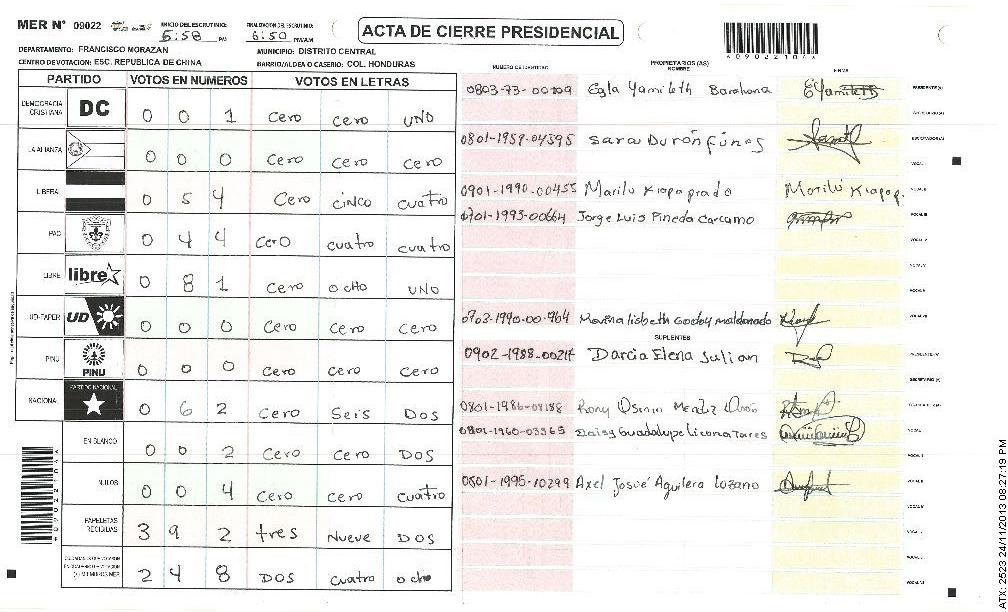 MER N° 09022 INICIO DEL ESCRUTINIO: 5:58 PM FINALIZACION DEL ESCRUTINIO: 6:50 P.M/A.M ACTA DE CIERRE PRESIDENCIAL
DEPARTAMENTO: FRANCISCO MORAZAN MUNICIPIO: DISTRITO CENTRAL
CENTRO DE VOTACION: ESC. REPUBLICA DE CHINA BARRIO/ALDEA O CASERIO: COL. HONDURAS
PARTIDO VOTOS EN NUMEROS VOTOS EN LETRAS
DEMOCRACIA CRISTIANA DC 0 0 1 Cero Cero UNO
LA ALIANZA 0 0 0 Cero Cero Cero
LIBERAL 0 5 4 Cero cinco cuatro
PAC 0 4 4 Cero cuatro cuatro
LIBRE libre 0 8 1 Cero ocho UNO
UD-FAPER UD 0 0 0 Cero Cero Cero
PINU PINU 0 0 0 Cero Cero Cero
NACIONAL PARTIDO NACIONAL 0 6 2 Cero Seis DOS
EN BLANCO 0 0 2 Cero Cero DOS
NULOS 0 0 4 Cero Cero cuatro
PAPELETAS RECIBIDAS 3 9 2 tres Nueve DOS
2 4 8 DOS cuatro ocho
NUMERO DE IDENTIDAD PROPIETARIOS (AS) NOMBRE FIRMA
0803-73-00109 Egla Yamileth Barahona PRESIDENTE(A)
SECRETARIO(A)
0801-1959-04395 Sara Durón fúnes ESCRUTADOR(A)
VOCAL I
0901-1990-00455 Marilú Kiapa prado VOCAL II
0701-1993-00664 Jorge Luis Pineda Carcamo VOCAL III
VOCAL IV
VOCAL V
VOCAL VI
0703-1990-00964 lisbeth Godoy maldonado VOCAL VII
SUPLENTES
0902-1988-00217 Darcia Elena Julian
SECRETARIO(A)
0801-1986-04188 Rony
0801-1960-03565 Daisy Guadalupe Licona Torres
0801-1995-10299 Axel Josué Aguilera Lozano
A09022104A
ATX: 2523 24/11/2013 08:27:19 PM